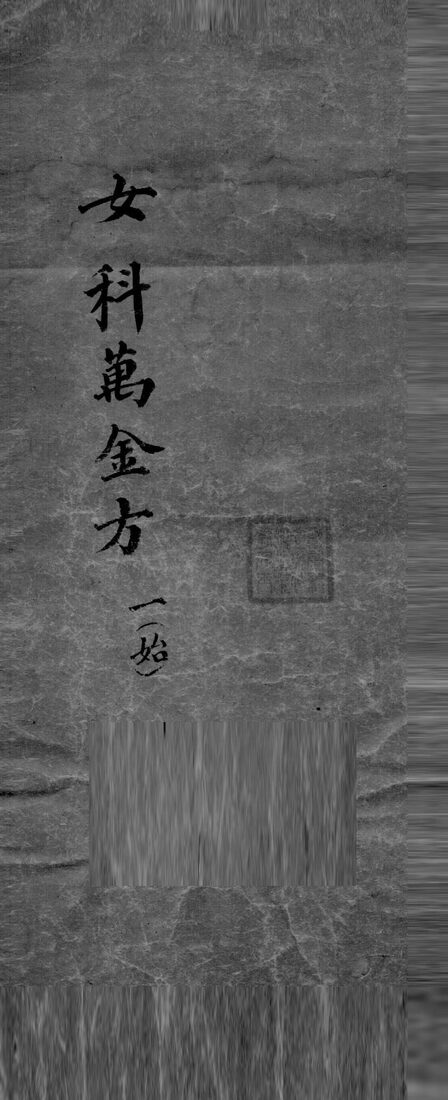 女科萬金方
一(始)